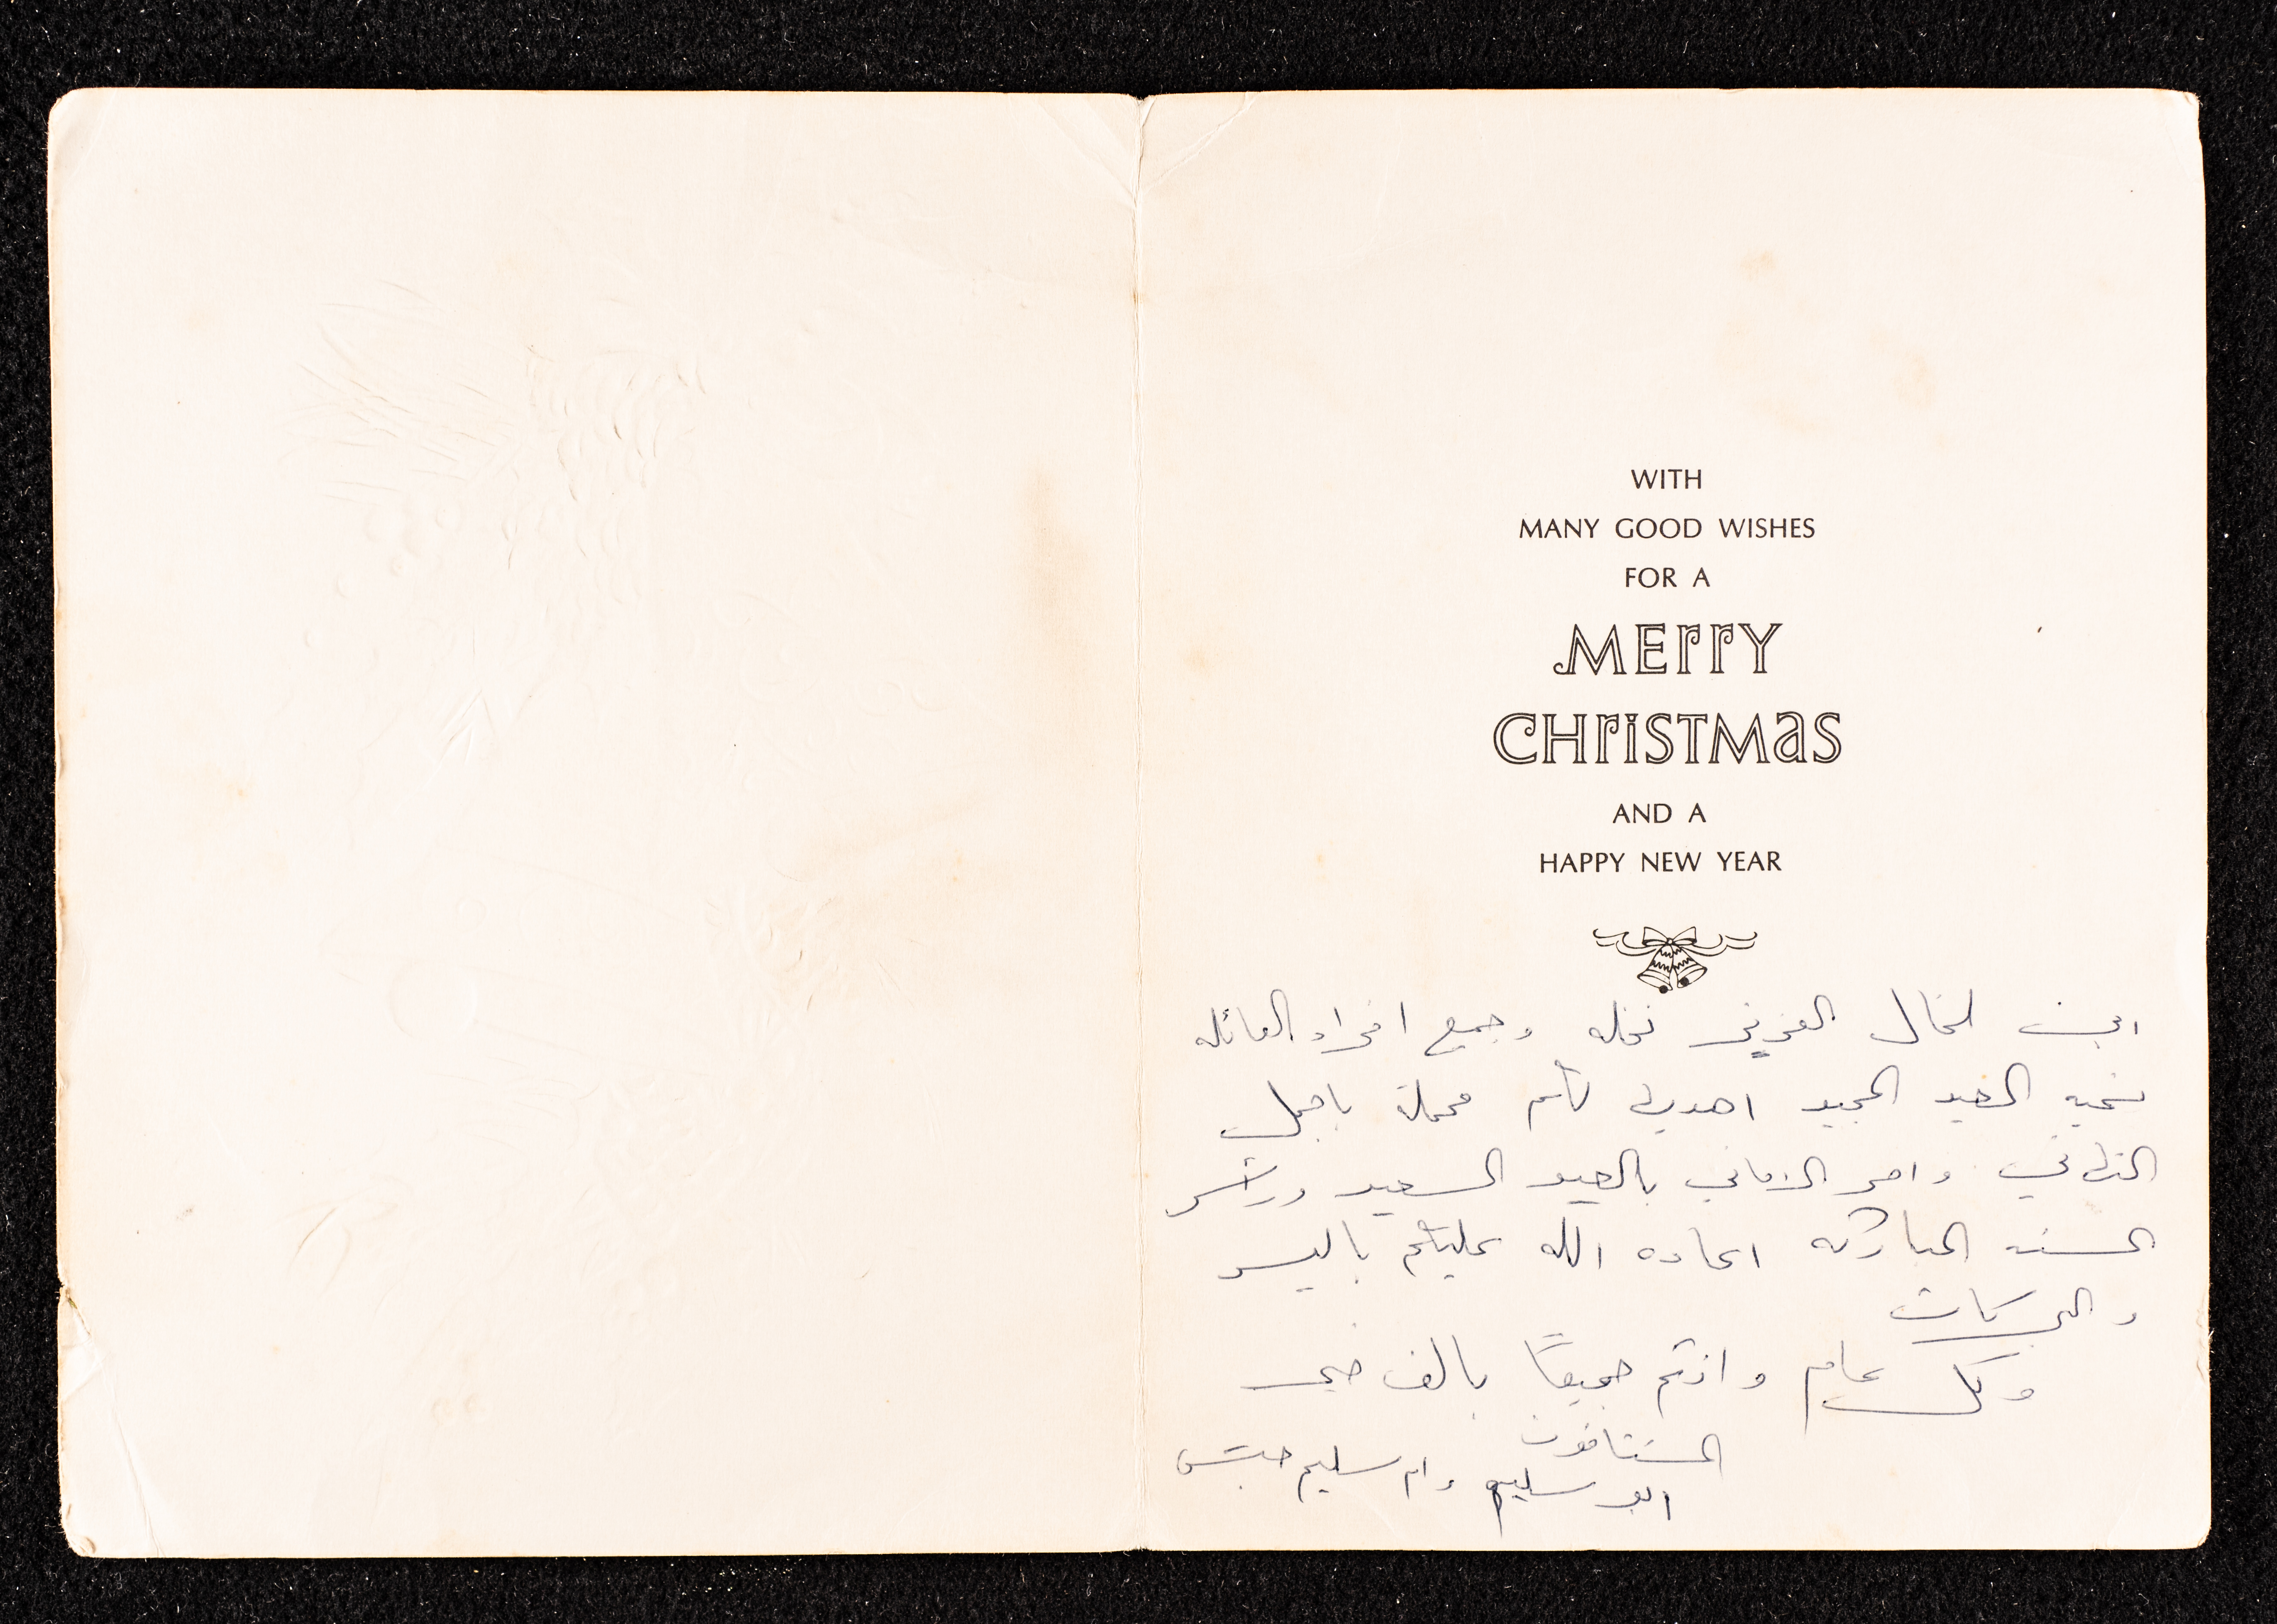 WITH
MANY GOOD WISHES
FOR A
MERRY
CHRISTMAS
AND A
HAPPY NEW YEAR
ابن الخال العزيز نخله وجميع افراد العائله
تحيه العيد المجيد اهديها لكم محملة باجمل
التهاني واحر الاماني بالعيد السعيد وراس
السنه المباركه اعاده الله عليكم باليسر
والبركات
وكل عام وانتم جميعًا بالف خير
المشتاقون
ابو سليم وام سليم حبش